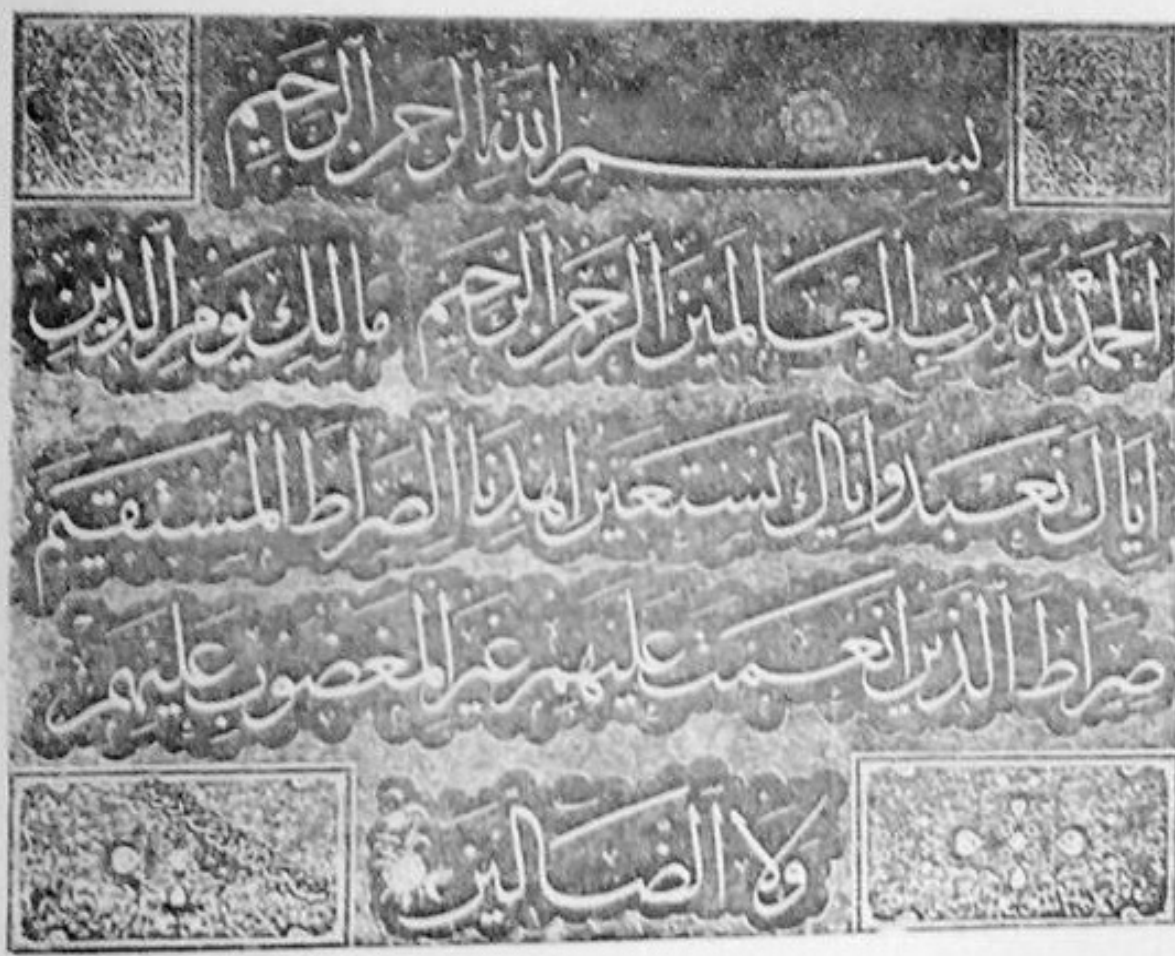 بِسْمِ اللهِ الرَّحْمنِ الرَّحِيمِ
اَلْحَمْدُ لِلّهِ رَبِّ الْعَالَمِينَ الرَّحْمنِ الرَّحِيمِ مَالِكِ يَوْمِ الدِّينِ
اِيَّاكَ نَعْبُدُ وَاِيَّاكَ نَسْتَعِينُ اِهْدِنَا الصِّرَاطَ الْمُسْتَقِيمَ
صِرَاطَ الَّذِينَ اَنْعَمْتَ عَلَيْهِمْ غَيْرِ الْمَغْضُوبِ عَلَيْهِمْ
وَلَا الضَّالِّينَ